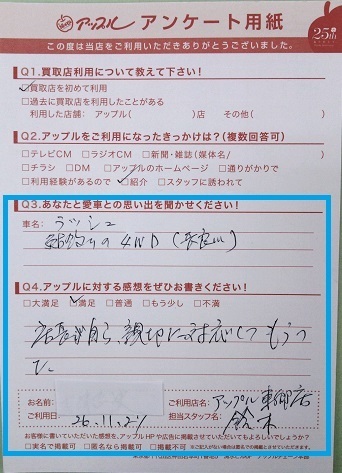 アップル アンケート用紙
25th
この度は当店をご利用いただきありがとうございました。
Q1.買取店利用について教えて下さい!
☑買取店を初めて利用
□過去に買取店を利用したことがある
利用した店舗: アップル( )店 その他( )
Q2.アップルをご利用になったきっかけは?(複数回答可)
□テレビCM □ラジオCM □新聞・雑誌(媒体名/ )
□チラシ □DM □アップルのホームページ □通りがかりで
□利用経験があるので ☑紹介 □スタッフに誘われて
Q3.あなたと愛車との思い出を聞かせください!
車名: ラッシュ
鮎釣りの4WD(長良川)
Q4.アップルに対する感想をぜひお書きください!
□大満足 ☑満足 □普通 □もう少し □不満
店長が自ら、親切に対応してもらっ
た。
お名前:
ご利用店名: アップル東郷店
ご利用日: 26.11.21
担当スタッフ名: 鈴木
お客様に書いていただいた感想を、アップルHPや広告に掲載させていただいてもよろしいでしょうか?
□実名で掲載可 □匿名なら掲載可 □掲載不可